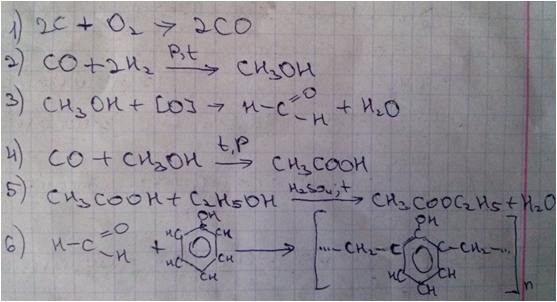 1) 2C + O₂ → 2CO
2) CO + 2H₂ —P,t→ CH₃OH
3) CH₃OH + [O] → H-C(=O)-H + H₂O
4) CO + CH₃OH —t,P→ CH₃COOH
5) CH₃COOH + C₂H₅OH —H₂SO₄,t→ CH₃COOC₂H₅ + H₂O
6) H-C(=O)-H + OH C HC CH HC CH CH → [...-CH₂-C OH C C-CH₂-... HC CH CH]n